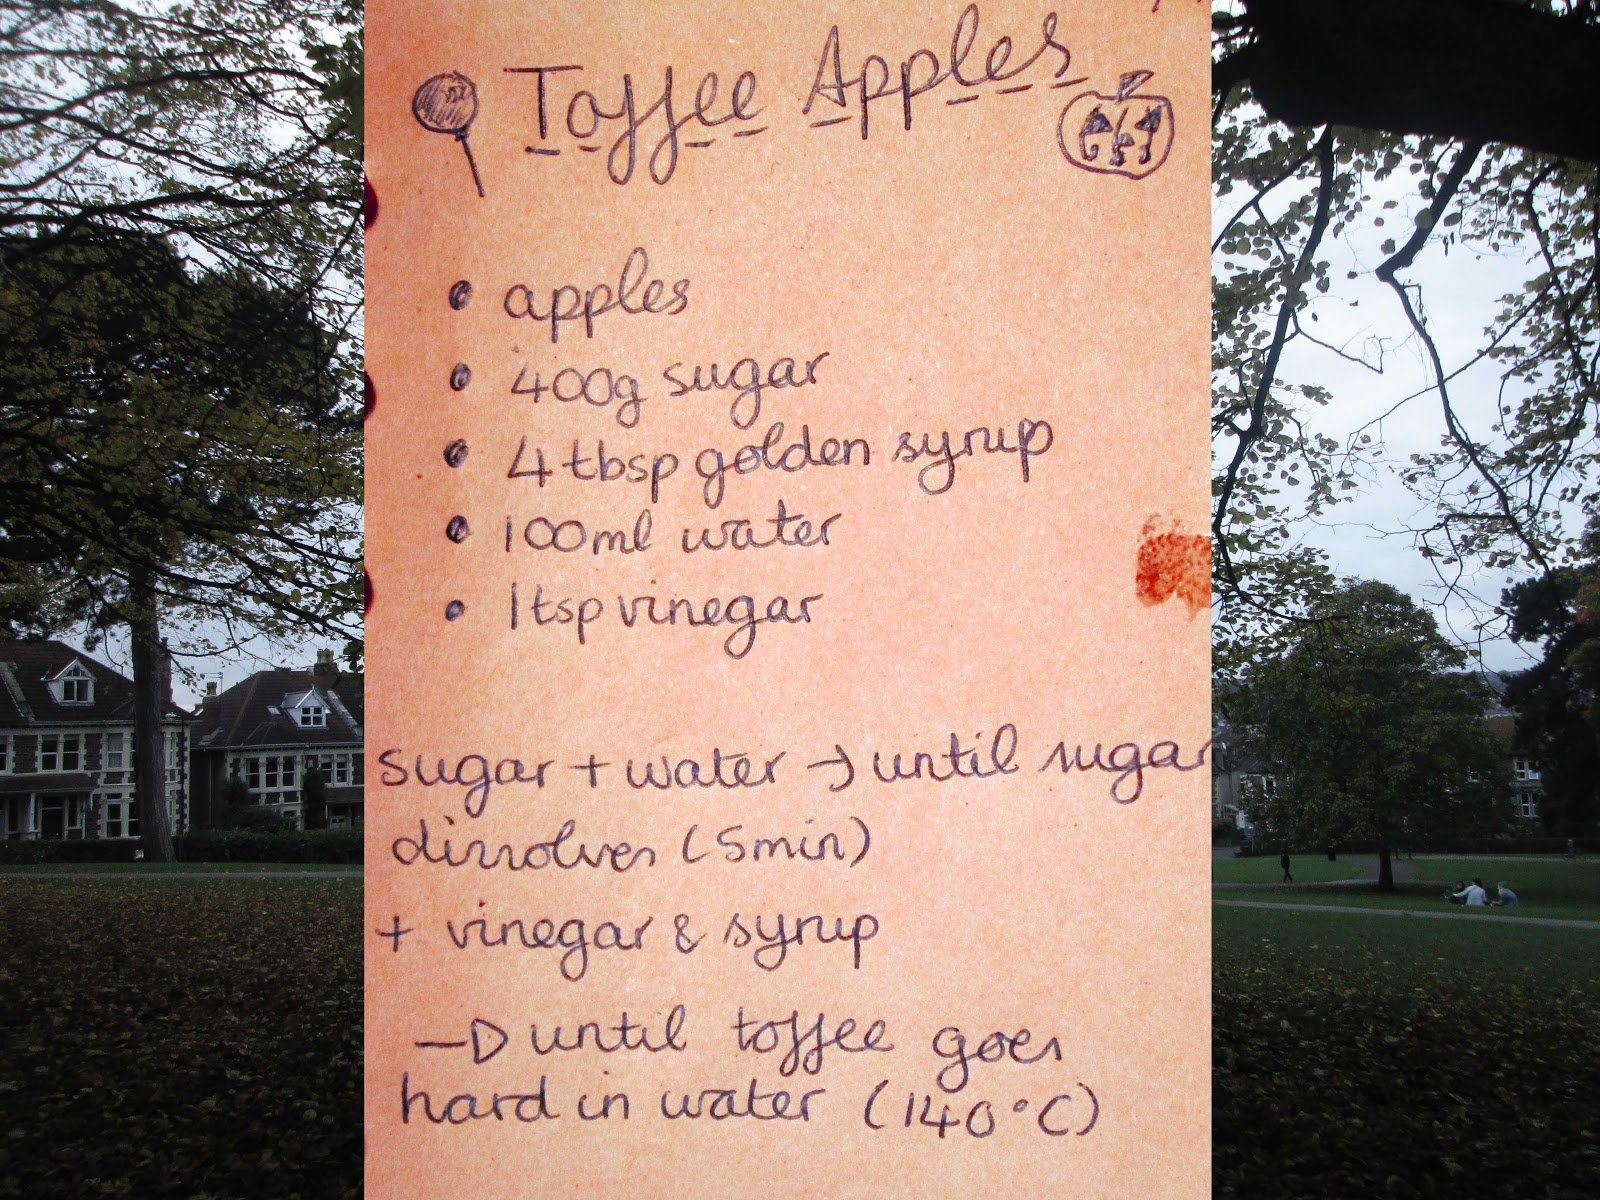 Toffee Apples
• apples
• 400g sugar
• 4 tbsp golden syrup
• 100ml water
• 1 tsp vinegar
sugar + water → until sugar
dissolves (5min)
+ vinegar & syrup
→ until toffee goes
hard in water (140°C)